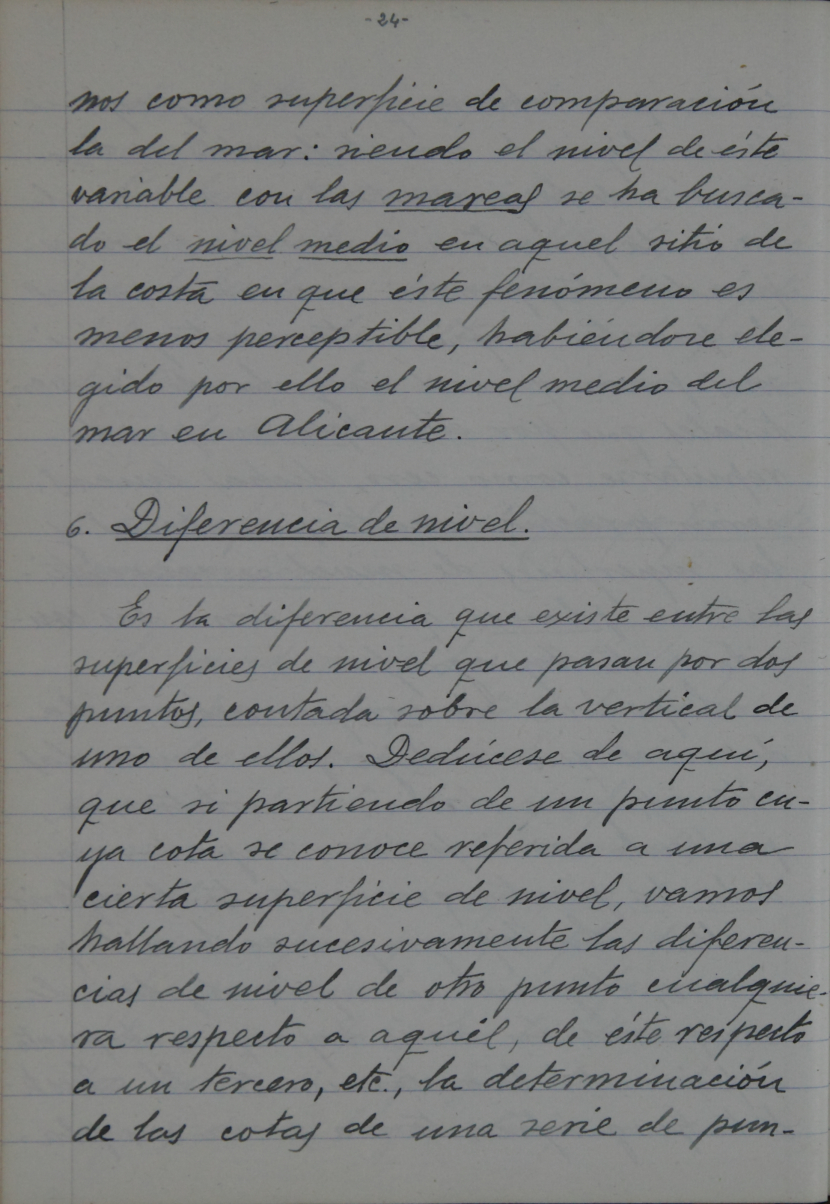 -24-
nos como superficie de comparación
la del mar: siendo el nivel de éste
variable con las mareas se ha busca-
do el nivel medio en aquel sitio de
la costa en que éste fenómeno es
menos perceptible, habiéndose ele-
gido por ello el nivel medio del
mar en Alicante.
6. Diferencia de nivel.
Es la diferencia que existe entre las
superficies de nivel que pasan por dos
puntos, contada sobre la vertical de
uno de ellos. Dedúcese de aquí,
que si partiendo de un punto cu-
ya cota se conoce referida a una
cierta superficie de nivel, vamos
hallando sucesivamente las diferen-
cias de nivel de otro punto cualquie-
ra respecto a aquél, de éste respecto
a un tercero, etc., la determinación
de las cotas de una serie de pun-